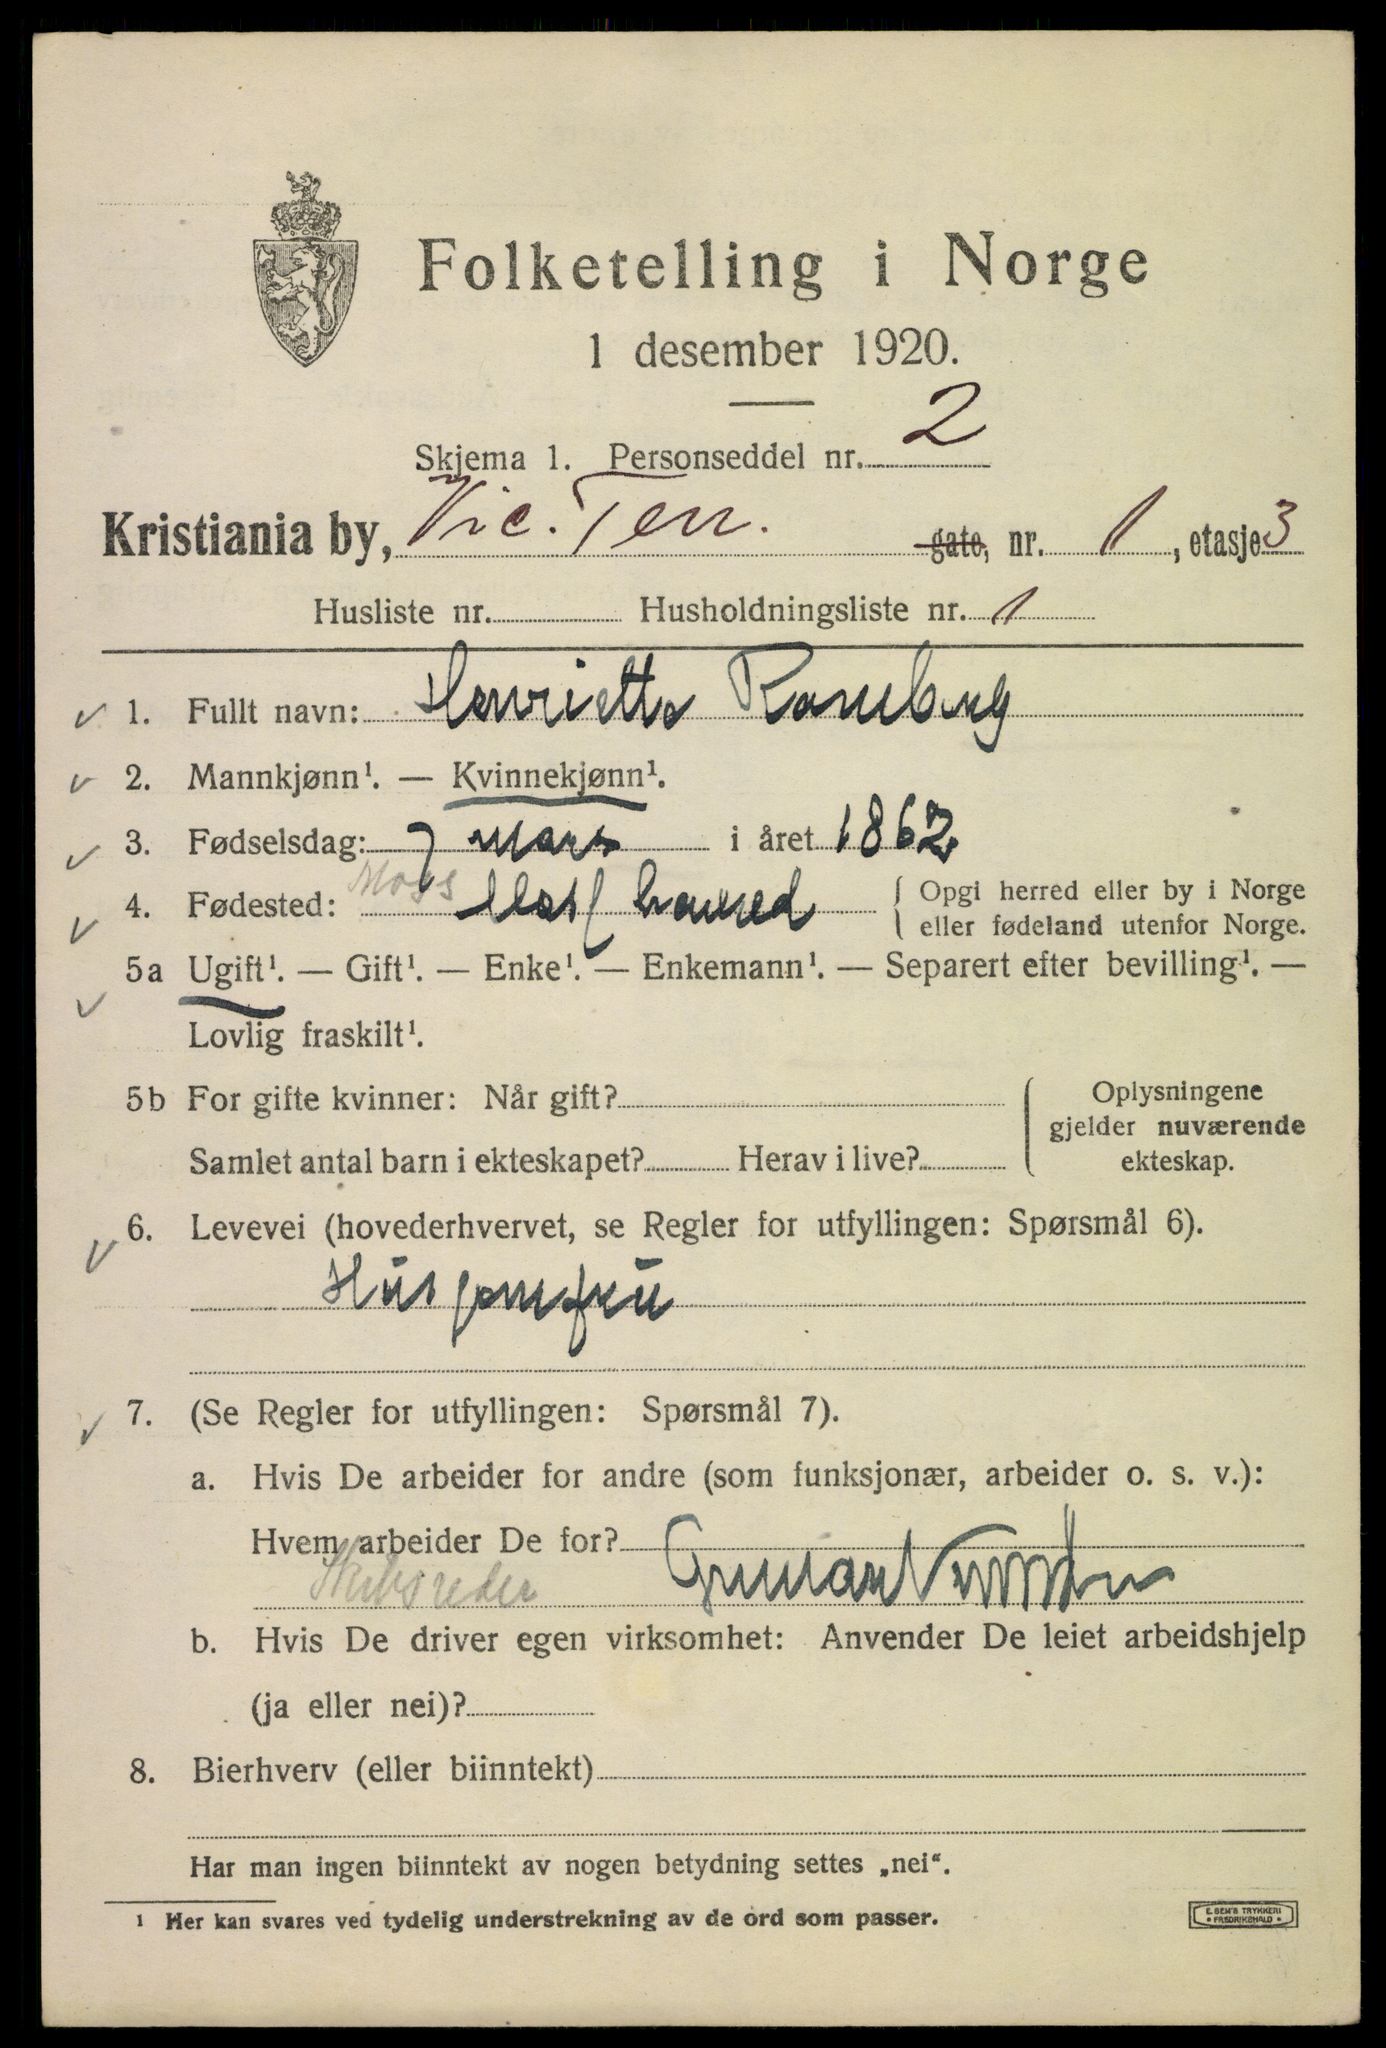 Folketelling i Norge
1 desember 1920.
Skjema 1. Personseddel nr. 2
Kristiania by, Vic. Terr. gate, nr. 1, etasje 3
Husliste nr. Husholdningsliste nr. 1
1. Fullt navn: Henriette Ramberg
2. Mannkjønn¹. — Kvinnekjønn¹.
3. Fødselsdag: 7 Mars i året 1862
Moss
4. Fødested: Moss { Opgi herred eller by i Norge
eller fødeland utenfor Norge.
5a Ugift¹. — Gift¹. — Enke¹. — Enkemann¹. — Separert efter bevilling¹. —
Lovlig fraskilt¹.
5b For gifte kvinner: Når gift?
Samlet antal barn i ekteskapet? Herav i live?
Oplysningene
gjelder nuværende
ekteskap.
6. Levevei (hovederhvervet, se Regler for utfyllingen: Spørsmål 6).
Husjomfru
7. (Se Regler for utfyllingen: Spørsmål 7).
a. Hvis De arbeider for andre (som funksjonær, arbeider o. s. v.):
Hvem arbeider De for? Gunnar
Skibsreder
b. Hvis De driver egen virksomhet: Anvender De leiet arbeidshjelp
(ja eller nei)?
8. Bierhverv (eller biinntekt)
Har man ingen biinntekt av nogen betydning settes „nei“.
¹ Her kan svares ved tydelig understrekning av de ord som passer.
E. SEM'S TRYKKERI
• FREDRIKSHALD •